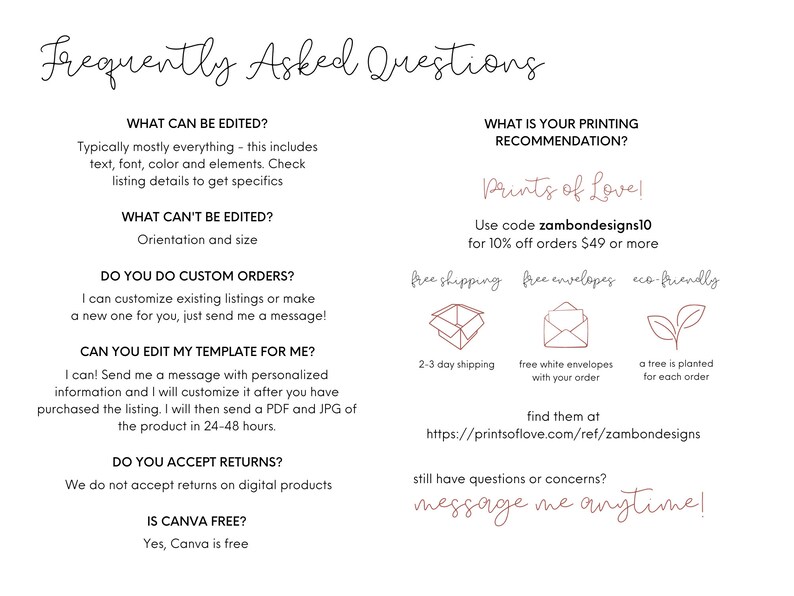 Frequently Asked Questions
WHAT CAN BE EDITED?
Typically mostly everything - this includes
text, font, color and elements. Check
listing details to get specifics
WHAT CAN'T BE EDITED?
Orientation and size
DO YOU DO CUSTOM ORDERS?
I can customize existing listings or make
a new one for you, just send me a message!
CAN YOU EDIT MY TEMPLATE FOR ME?
I can! Send me a message with personalized
information and I will customize it after you have
purchased the listing. I will then send a PDF and JPG of
the product in 24-48 hours.
DO YOU ACCEPT RETURNS?
We do not accept returns on digital products
IS CANVA FREE?
Yes, Canva is free
WHAT IS YOUR PRINTING
RECOMMENDATION?
Prints of Love!
Use code zambondesigns10
for 10% off orders $49 or more
free shipping free envelopes eco-friendly
2-3 day shipping free white envelopes a tree is planted
with your order for each order
find them at
https://printsoflove.com/ref/zambondesigns
still have questions or concerns?
message me anytime!